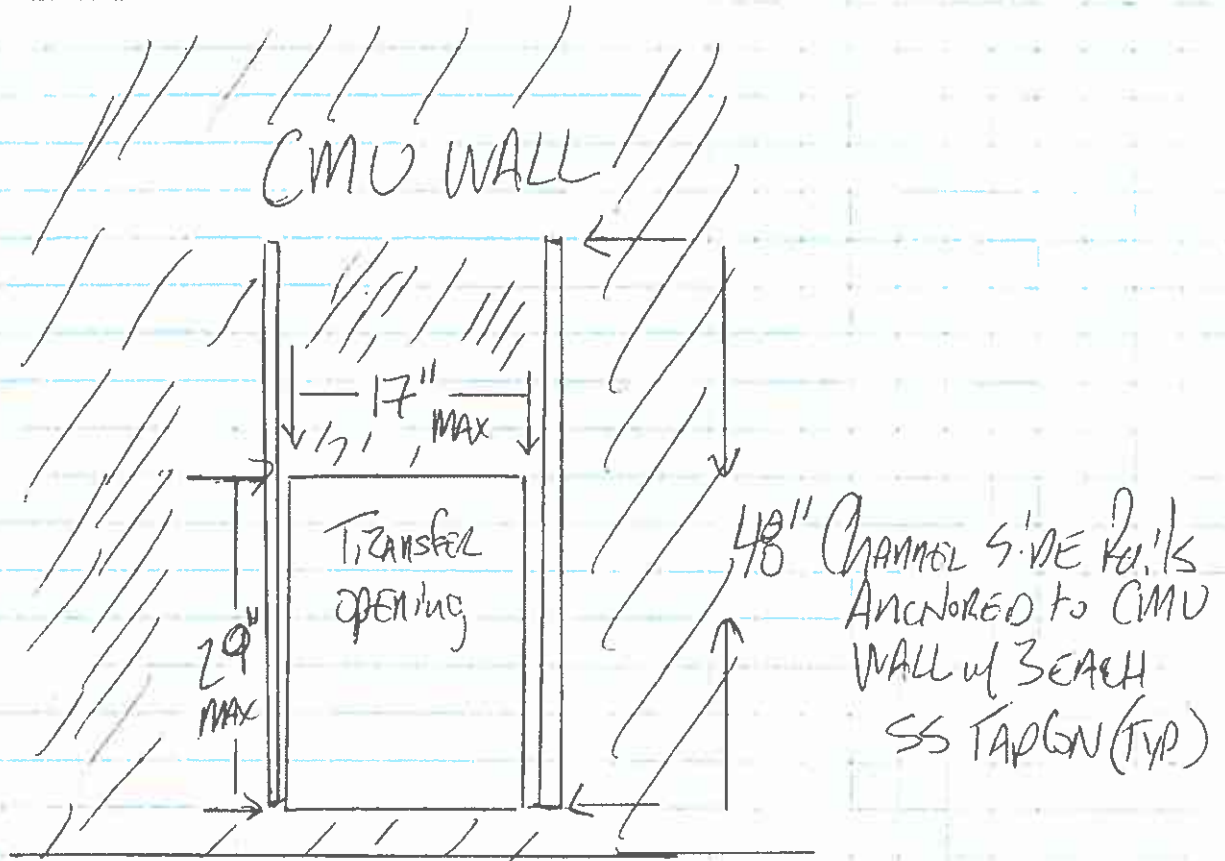 CMU WALL
17"
MAX
TRANSFER
OPENING
29"
MAX
48" CHANNEL SIDE RAILS
ANCHORED to CMU
WALL w/ 3 EACH
SS TAPCON (TYP)